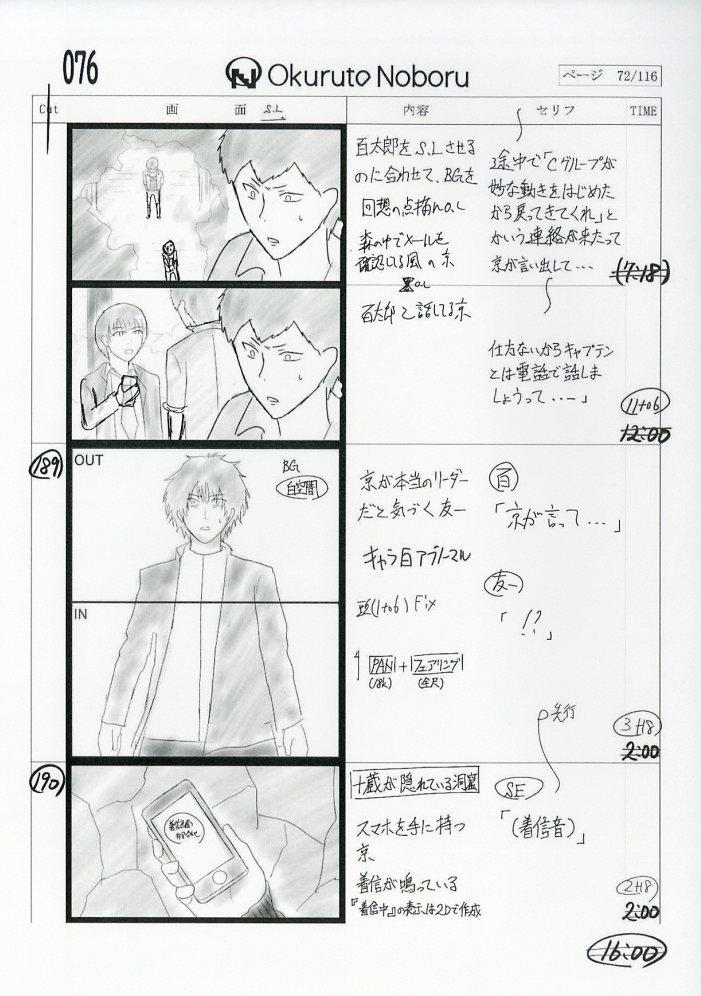 076
Okuruto Noboru
ページ 72/116
Cut 画 面 S.L 内容 セリフ TIME
百太郎をS.Lさせる
のに合わせて、BGを
回想の点描へO.L
森の中でメールを
確認してる風の京
途中で「Cグループが
妙な動きをはじめた
から戻ってきてくれ」と
かいう連絡が来たって
京が言い出して・・・
(7:18)
百太郎と話してる京
仕方ないからキャプテン
とは電話で話しま
しょうって・・・」
11+06
12:00
189
OUT
BG
白空間
IN
京が本当のリーダー
だと気づく友一
キャラ白アブノーマル
頭(1+06) Fix
PAN + フェアリング
(18k) (全尺)
百
「京が言って・・・」
友一
「!?」
先行
3+18
2:00
190
十蔵が隠れている洞窟
スマホを手に持つ
京
着信が鳴っている
『着信中』の表示は2Dで作成
SE
「(着信音)」
2+18
2:00
16:00